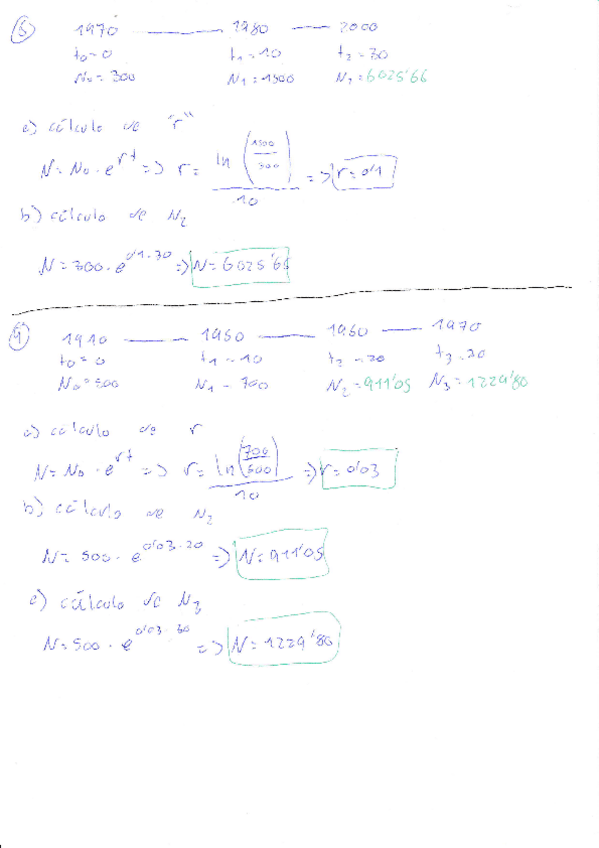 1970 — 1980 — 2000
t₀ = 0 t₁ = 10 t₂ = 30
N₀ = 300 N₁ = 1500 N₂ = 6025'66
a) cálculo de "r"
N = N₀ · e^rt => r = ln (1500/300) / 10 => r = 0'1
b) cálculo de N₂
N = 300 · e^0'1·30 => N = 6025'66
1910 — 1950 — 1960 — 1970
t₀ = 0 t₁ = 10 t₂ = 20 t₃ = 30
N₀ = 500 N₁ = 700 N₂ = 911'05 N₃ = 1229'80
a) cálculo de r
N = N₀ · e^rt => r = ln (700/500) / 10 => r = 0'03
b) cálculo de N₂
N = 500 · e^0'03·20 => N = 911'05
c) cálculo de N₃
N = 500 · e^0'03·30 => N = 1229'80